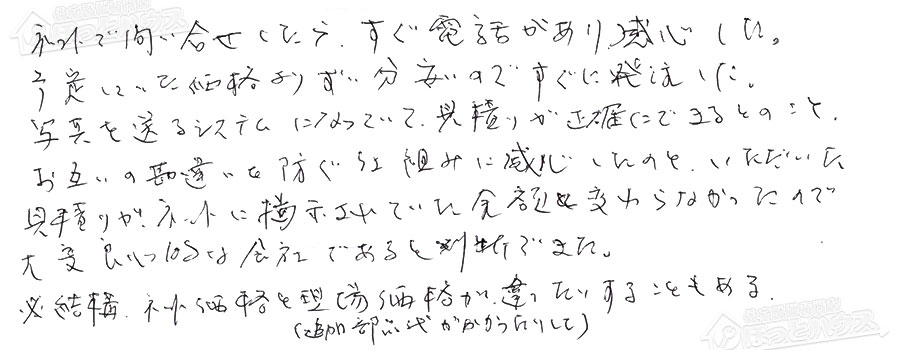 ネットで問い合せしたら、すぐ電話があり感心した。
予定していた価格よりずい分安いのですぐに発注した。
写真を送るシステムになっていて、見積りが正確にできるとのこと、
お互いの勘違いを防ぐ仕組みに感心したのと、いただいた
見積りが、ネットに掲示されていた金額と変わらなかったので
大変良い会社であると判断できた。
結構、ネット価格と現場価格が、違ったりすることもある。
(追加部品代がかかったりして)
ほっとハウス